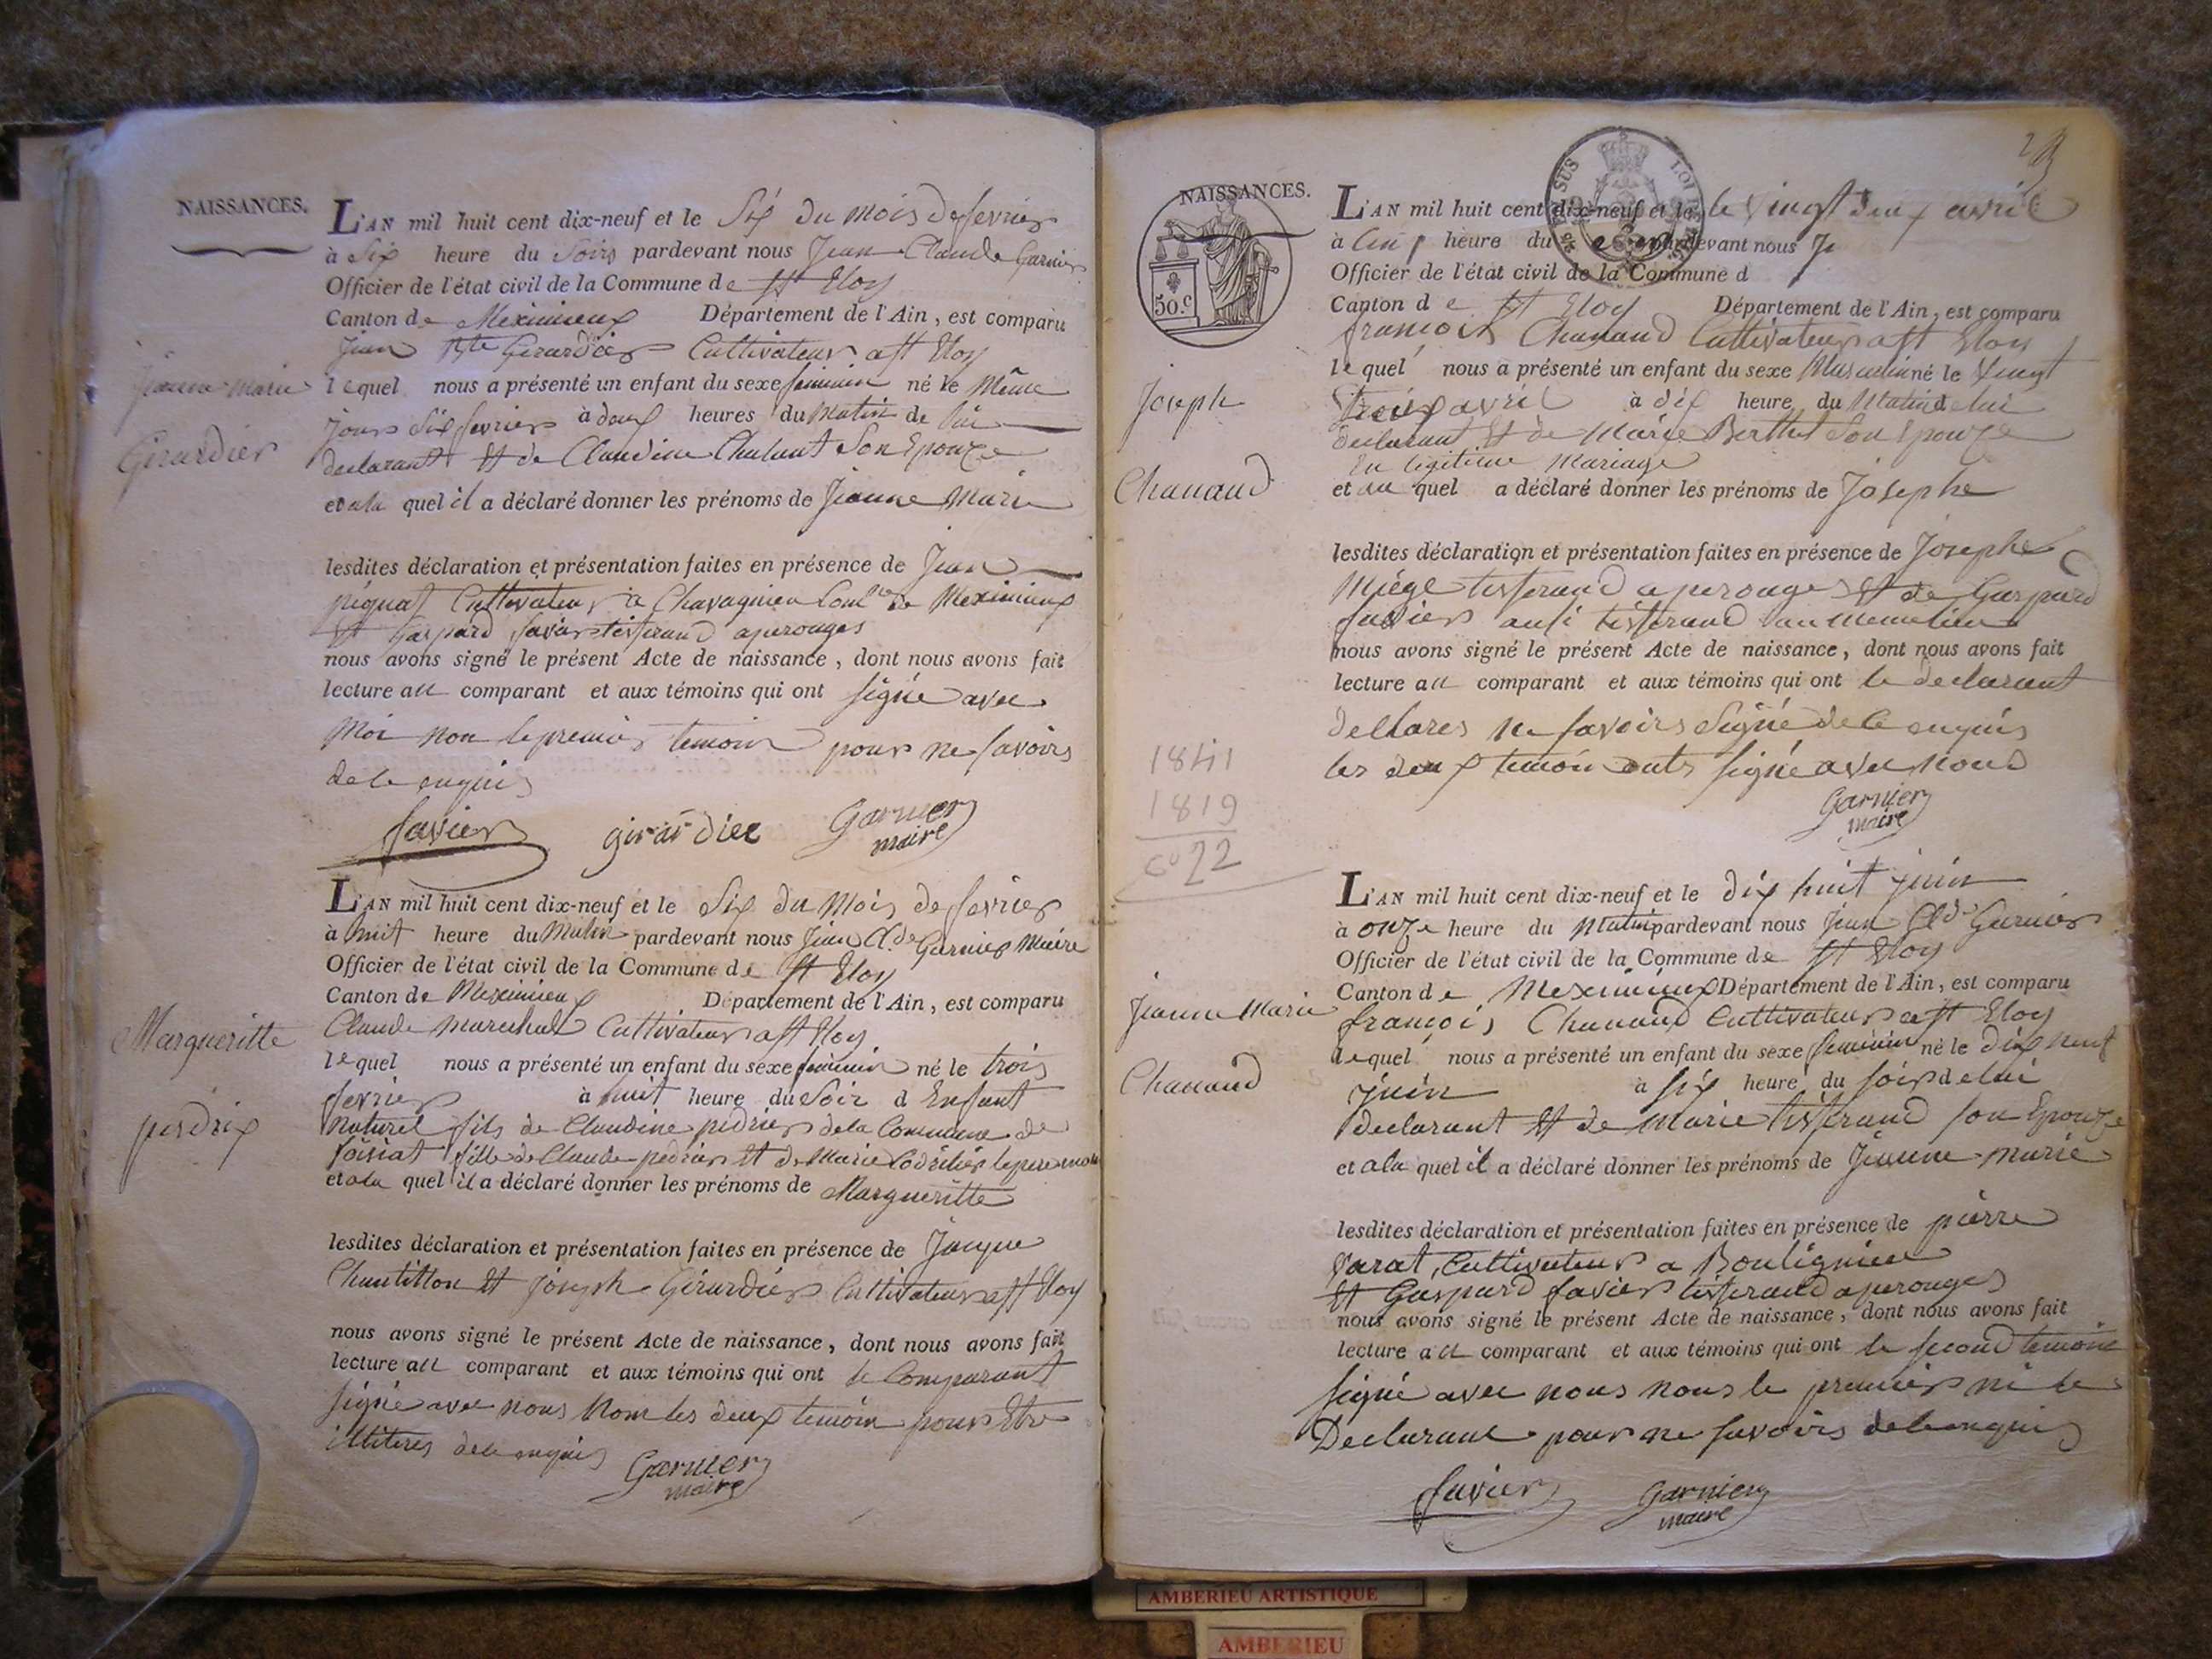 NAISSANCES.
L'AN mil huit cent dix-neuf et le Six du mois de fevrier
à Six heure du Soirs pardevant nous Jean Claude Garnier
Officier de l'état civil de la Commune de St Eloy
Canton de Meximieux Département de l'Ain, est comparu
Jean Bte Girardier Cultivateur a St Eloy
lequel nous a présenté un enfant du sexe feminin né le Même
jour Six fevrier à deux heures du Matin de lui
declarant Et de Claudine Chalant Son Epouze
et ala quel il a déclaré donner les prénoms de Jeanne Marie
Jeanne Marie
Girardier
lesdites déclaration et présentation faites en présence de Jean
pignat Cultivateur à Chavagnieu Comne de Meximieux
Et Gaspard favier tisserand a perouges
nous avons signé le présent Acte de naissance, dont nous avons fait
lecture au comparant et aux témoins qui ont Signé avec
Moi non le premier temoin pour ne savoirs
de ce enquis
favier girardier Garnier
maire
L'AN mil huit cent dix-neuf et le Six du Mois de fevrier
à huit heure du Matin pardevant nous Jean Cl.de Garnier Maire
Officier de l'état civil de la Commune de St Eloy
Canton de Meximieux Département de l'Ain, est comparu
Claude Marechal Cultivateur a St Eloy
lequel nous a présenté un enfant du sexe feminin né le trois
fevrier à huit heure du Soir d Enfant
Naturel fils de Claudine pedrier de la Commune de
fille de Claude pedrier Et de Marie le pere
et ala quel il a déclaré donner les prénoms de Margueritte
Margueritte
perdrix
lesdites déclaration et présentation faites en présence de Jacque
Chantillon Et joseph Girardier Cultivateur a St Eloy
nous avons signé le présent Acte de naissance, dont nous avons fait
lecture au comparant et aux témoins qui ont le Comparant
signé avec nous Nom les deux temoin pour Etre
illiteres de ce enquis
Garnier
maire
23
NAISSANCES.
50.c
L'AN mil huit cent dix-neuf et le le Vingt deux avril
à Cinq heure du pardevant nous Je
Officier de l'état civil de la Commune d
Canton de St Eloy Département de l'Ain, est comparu
françois Chanaud Cultivateur a St Eloy
lequel nous a présenté un enfant du sexe Masculin né le Vingt
avril à dix heure du Matin de lui
declarant Et de Marie Berthet Son Epouze
En legitime Mariage
et au quel a déclaré donner les prénoms de Josephe
Joseph
Chanaud
lesdites déclaration et présentation faites en présence de Josephe
Miége tisserand a perouges Et de Gaspard
favier ausi tisserand au meme lieu
nous avons signé le présent Acte de naissance, dont nous avons fait
lecture au comparant et aux témoins qui ont le declarant
declares ne savoirs Signé de ce enquis
les deux temoin onts signé avec nous
Garnier
maire
1841
1819
22
L'AN mil huit cent dix-neuf et le dix huit juin
à onze heure du Matin pardevant nous Jean Cl.de Garnier
Officier de l'état civil de la Commune de St Eloy
Canton de Meximieux Département de l'Ain, est comparu
françois Chanaud Cultivateur a St Eloy
lequel nous a présenté un enfant du sexe feminin né le dix neuf
juin à six heure du soir de lui
declarant Et de Marie tisserand son Epouze
et ala quel il a déclaré donner les prénoms de Jeanne Marie
Jeanne Marie
Chanaud
lesdites déclaration et présentation faites en présence de pierre
Varat, Cultivateur a Bouligneux
Et Gaspard favier tisserand a perouges
nous avons signé le présent Acte de naissance, dont nous avons fait
lecture au comparant et aux témoins qui ont le second temoin
signé avec nous nous le premier ni le
Declarant pour ne savoirs de ce enquis
favier Garnier
maire
AMBERIEU ARTISTIQUE
AMBERIEU